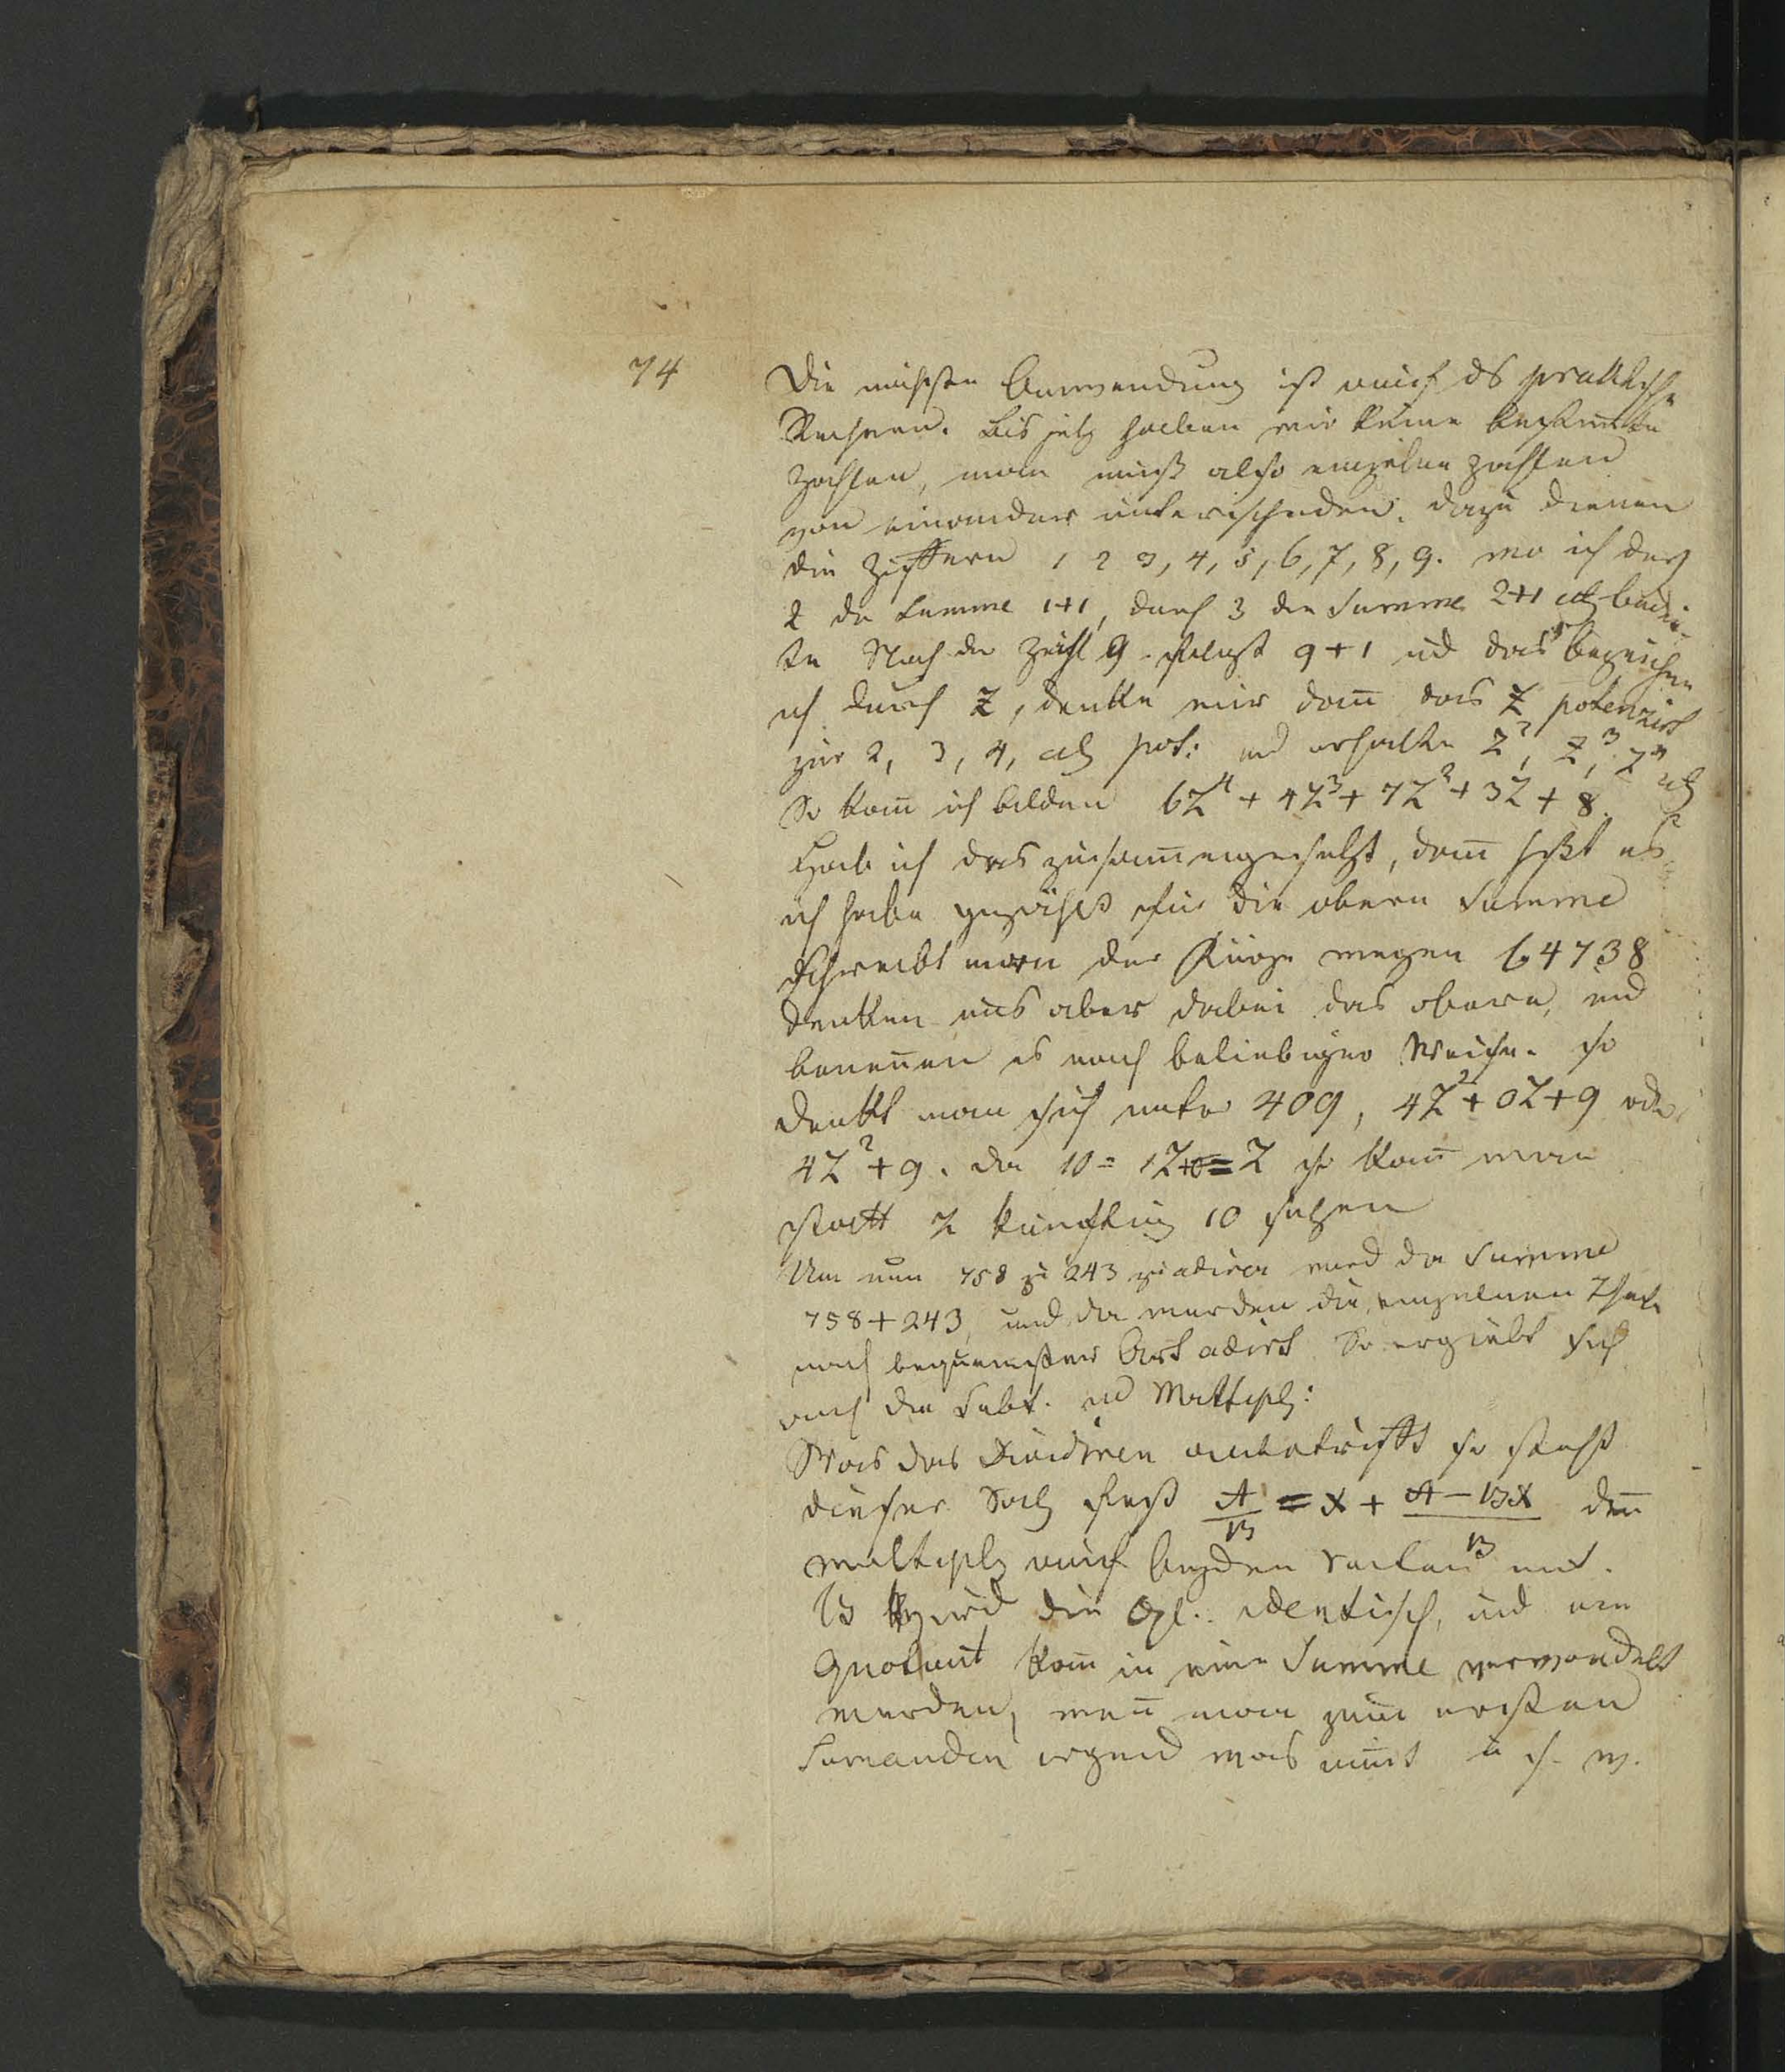 74
Die nächste Anwendung ist auf ds praktische
Rechnen. Bis jetz haben wir keine bestimte
Zahlen, man muß also einzelne Zahlen
von einander unterscheiden. dazu dienen
die Ziffern 1 2 3, 4, 5, 6, 7, 8, 9. wo ich durch
2 die Summe 1+1, durch 3 die Summe 2+1 etc bedeu-
te Nach der Zahl 9 folgt 9+1 und das bezeichne
ich durch Z, denke mir dann das Z potenzirt
zur 2, 3, 4, etc pot: und erhalte Z², Z³, Z⁴ etc
So kann ich bilden 6Z⁴ + 4Z³ + 7Z² + 3Z + 8.
Hab ich das zusammengesetzt, dann heißt es
ich habe gezählt für die obern Summe
schreibt man der Kürze wegen 64738
denken uns aber dabei das obere, und
benennen es nach beliebiger Weise. so
denkt man sich unter 409, 4Z²+0Z+9 oder
4Z²+9. da 10 = 1Z+0=Z so kann man
statt Z künftig 10 setzen
Um nun 758 zu 243 zu adiren wird die Summe
758+243, und da werden die einzelnen Theile
nach bequemster Art adirt. So ergiebt sich
auch die Subt. und Multipl:
Was das Dividiren anbetrifft so steht
dieser Satz fest A/B = x + (A − Bx)/B den
multipl auf beyden Seiten mit
B wird die Gl. identisch, und ein
Quotient kann in eine Summe verwandelt
werden, wenn man zum ersten
Sumanden irgend was nimt u. s. w.